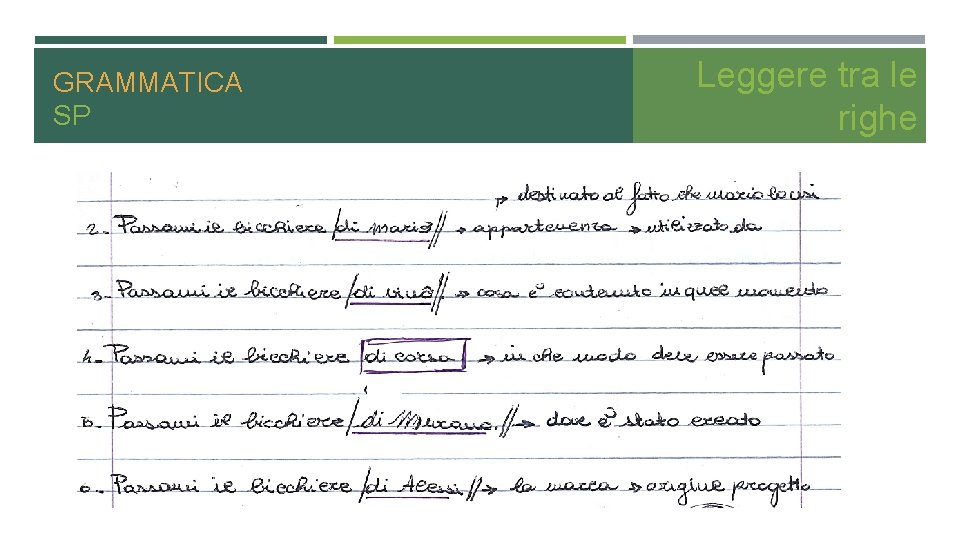 GRAMMATICA
SP
Leggere tra le
righe
→ destinato al fatto che mario lo usi
2- Passami il bicchiere /di mario// → appartenenza → utilizzato da
3- Passami il bicchiere /di vino// → cosa è contenuto in quel momento
4- Passami il bicchiere di corsa → in che modo deve essere passato
5- Passami il bicchiere /di Murano.// → dove è stato creato
6- Passami il bicchiere /di Alessi// → la marca → origine progetto